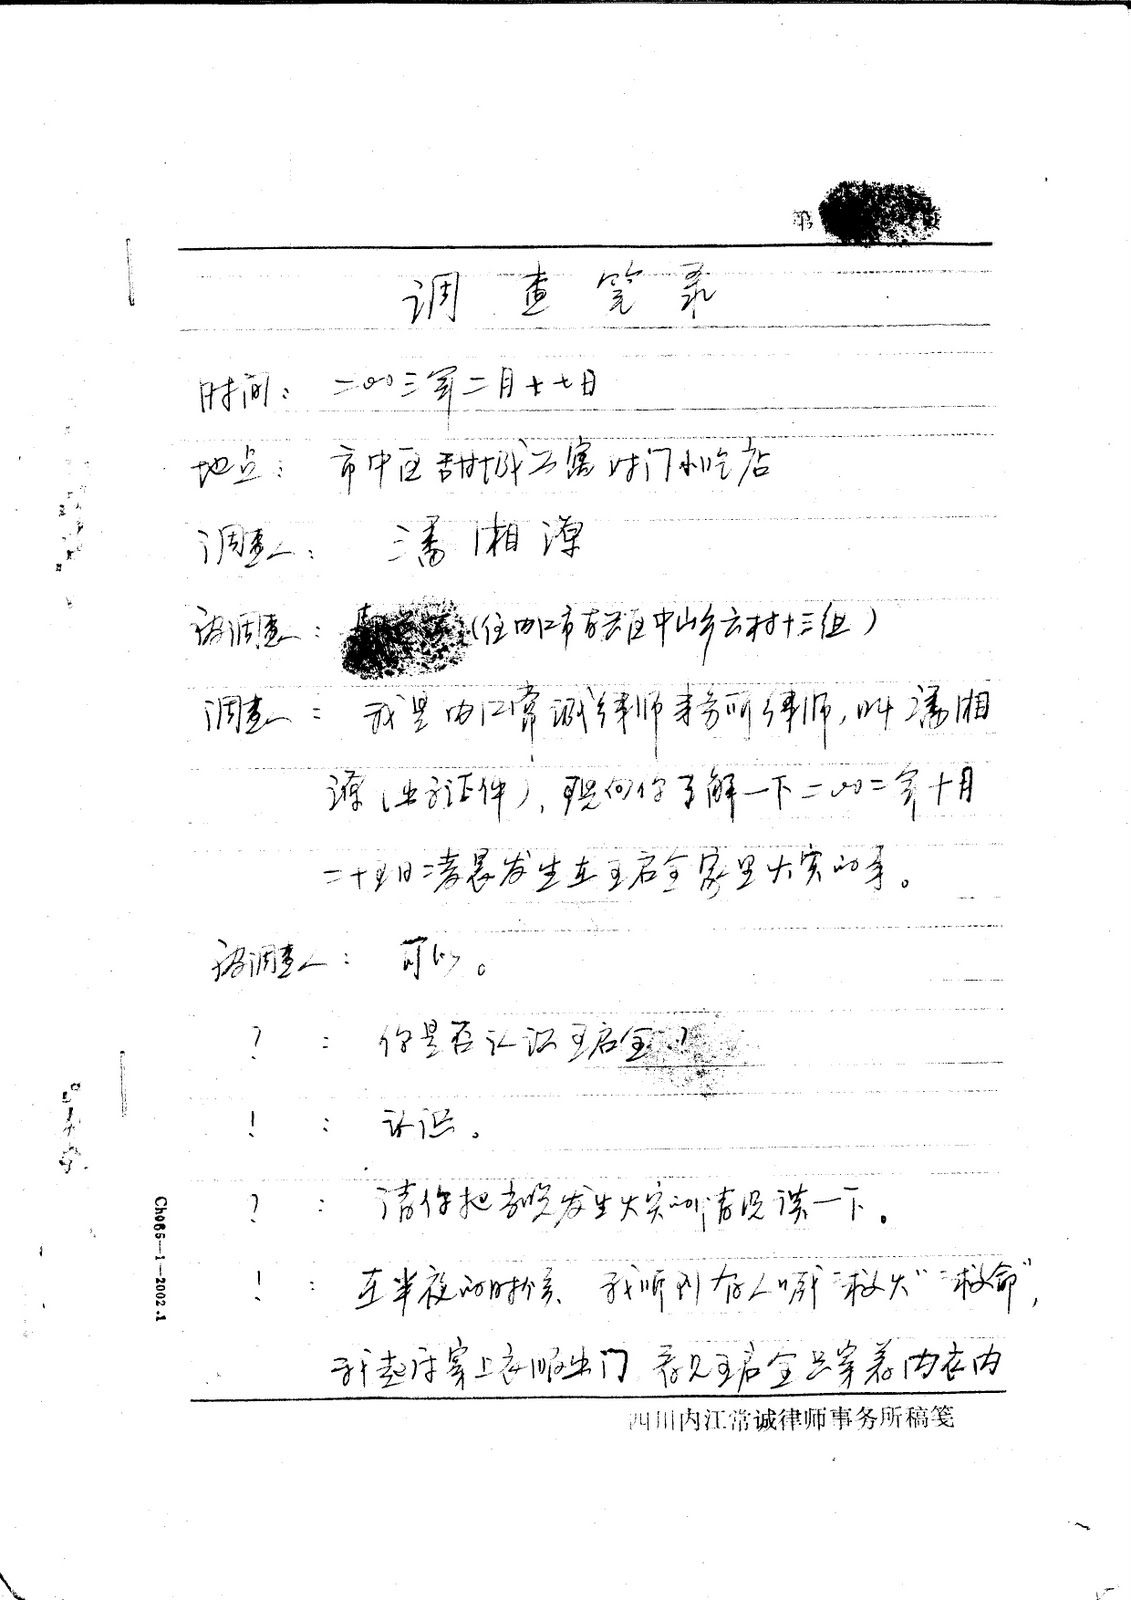 第
调查笔录
时间：二〇〇三年二月十七日
地点：市中区甜城公寓对门小吃店
调查人：潘湘源
被调查人：（住内江市东兴区中山乡云村十三组）
调查人：我是内江常诚律师事务所律师，叫潘湘
源（出示证件），现向你了解一下二〇〇二年十月
二十五日凌晨发生在王启全家里火灾的事。
被调查人：可以。
？：你是否认识王启全？
！：认识。
？：请你把当晚发生火灾的情况谈一下。
！：在半夜的时候、我听到有人喊“救火”“救命”，
我起床穿上衣服出门 看见王启全只穿着内衣内
四川内江常诚律师事务所稿笺
Cho65—1—2002.1